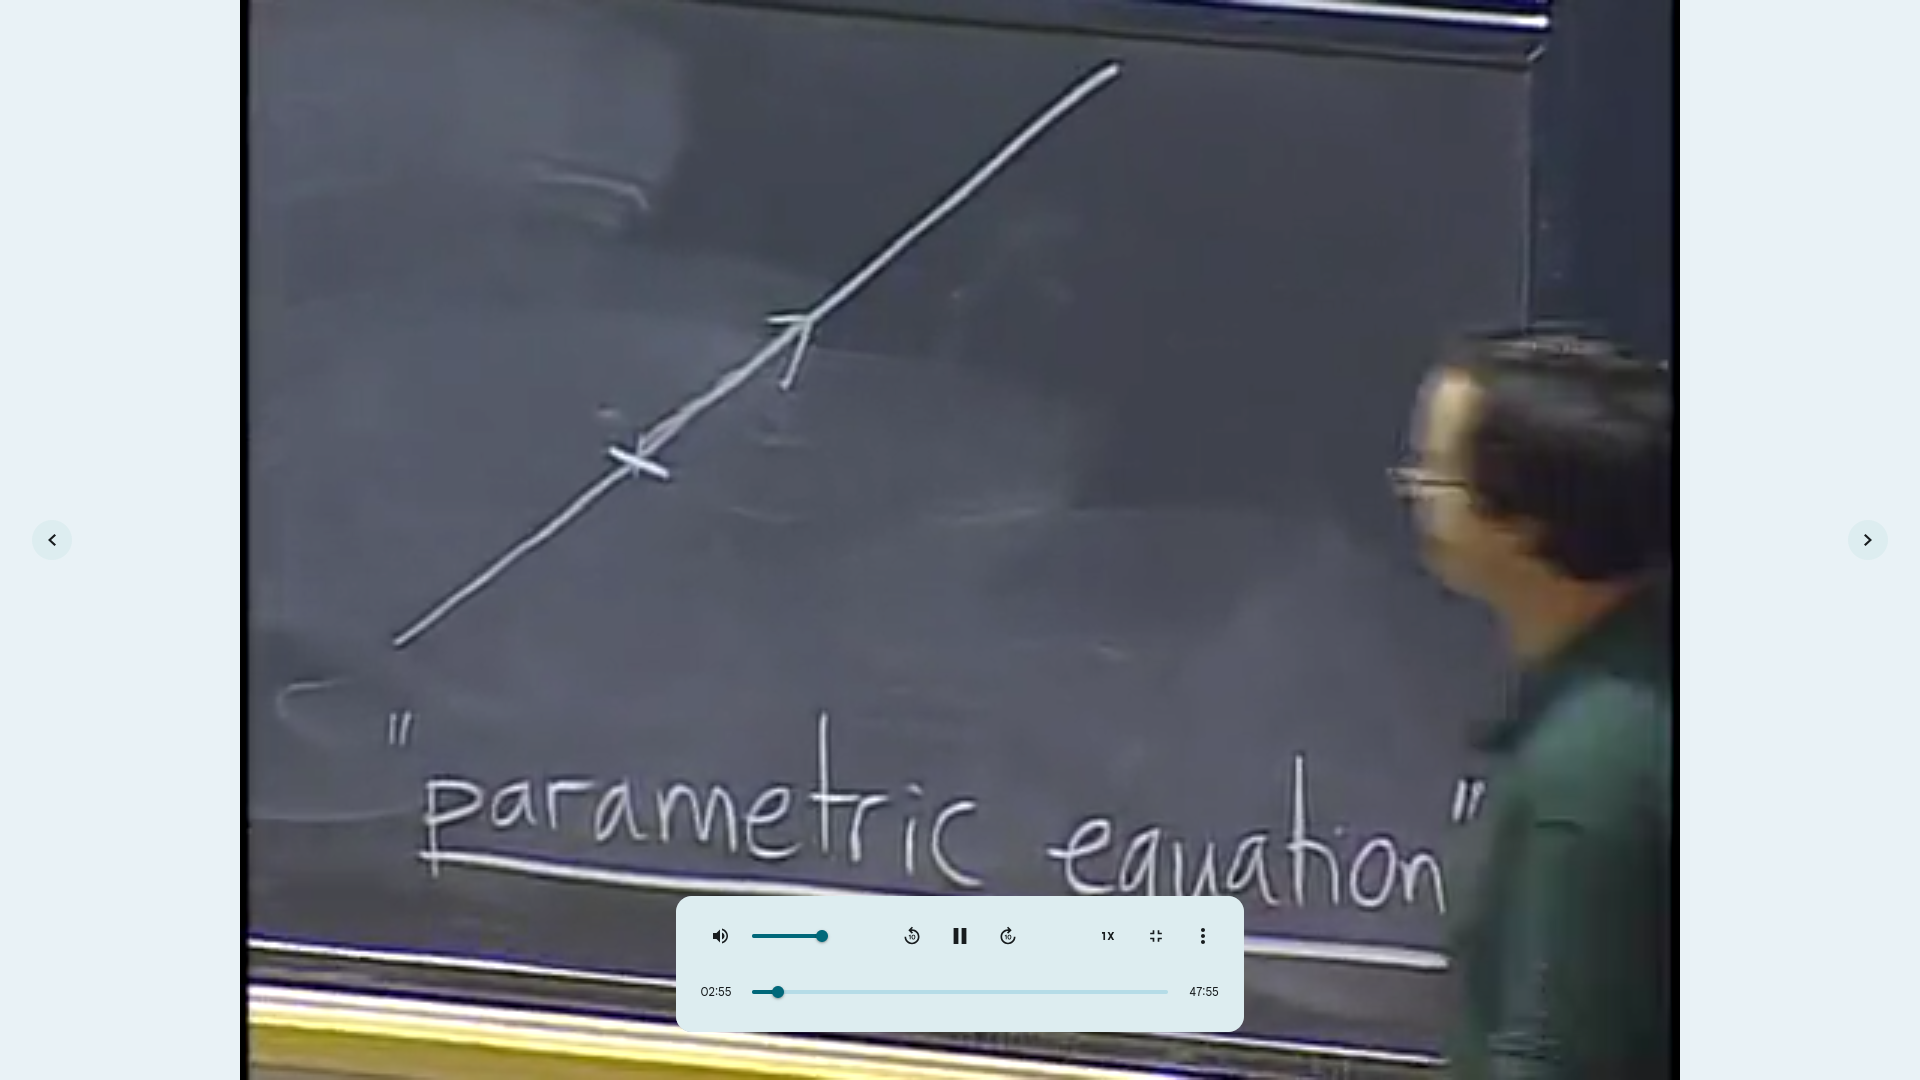 "parametric equation"
1X
02:55
47:55